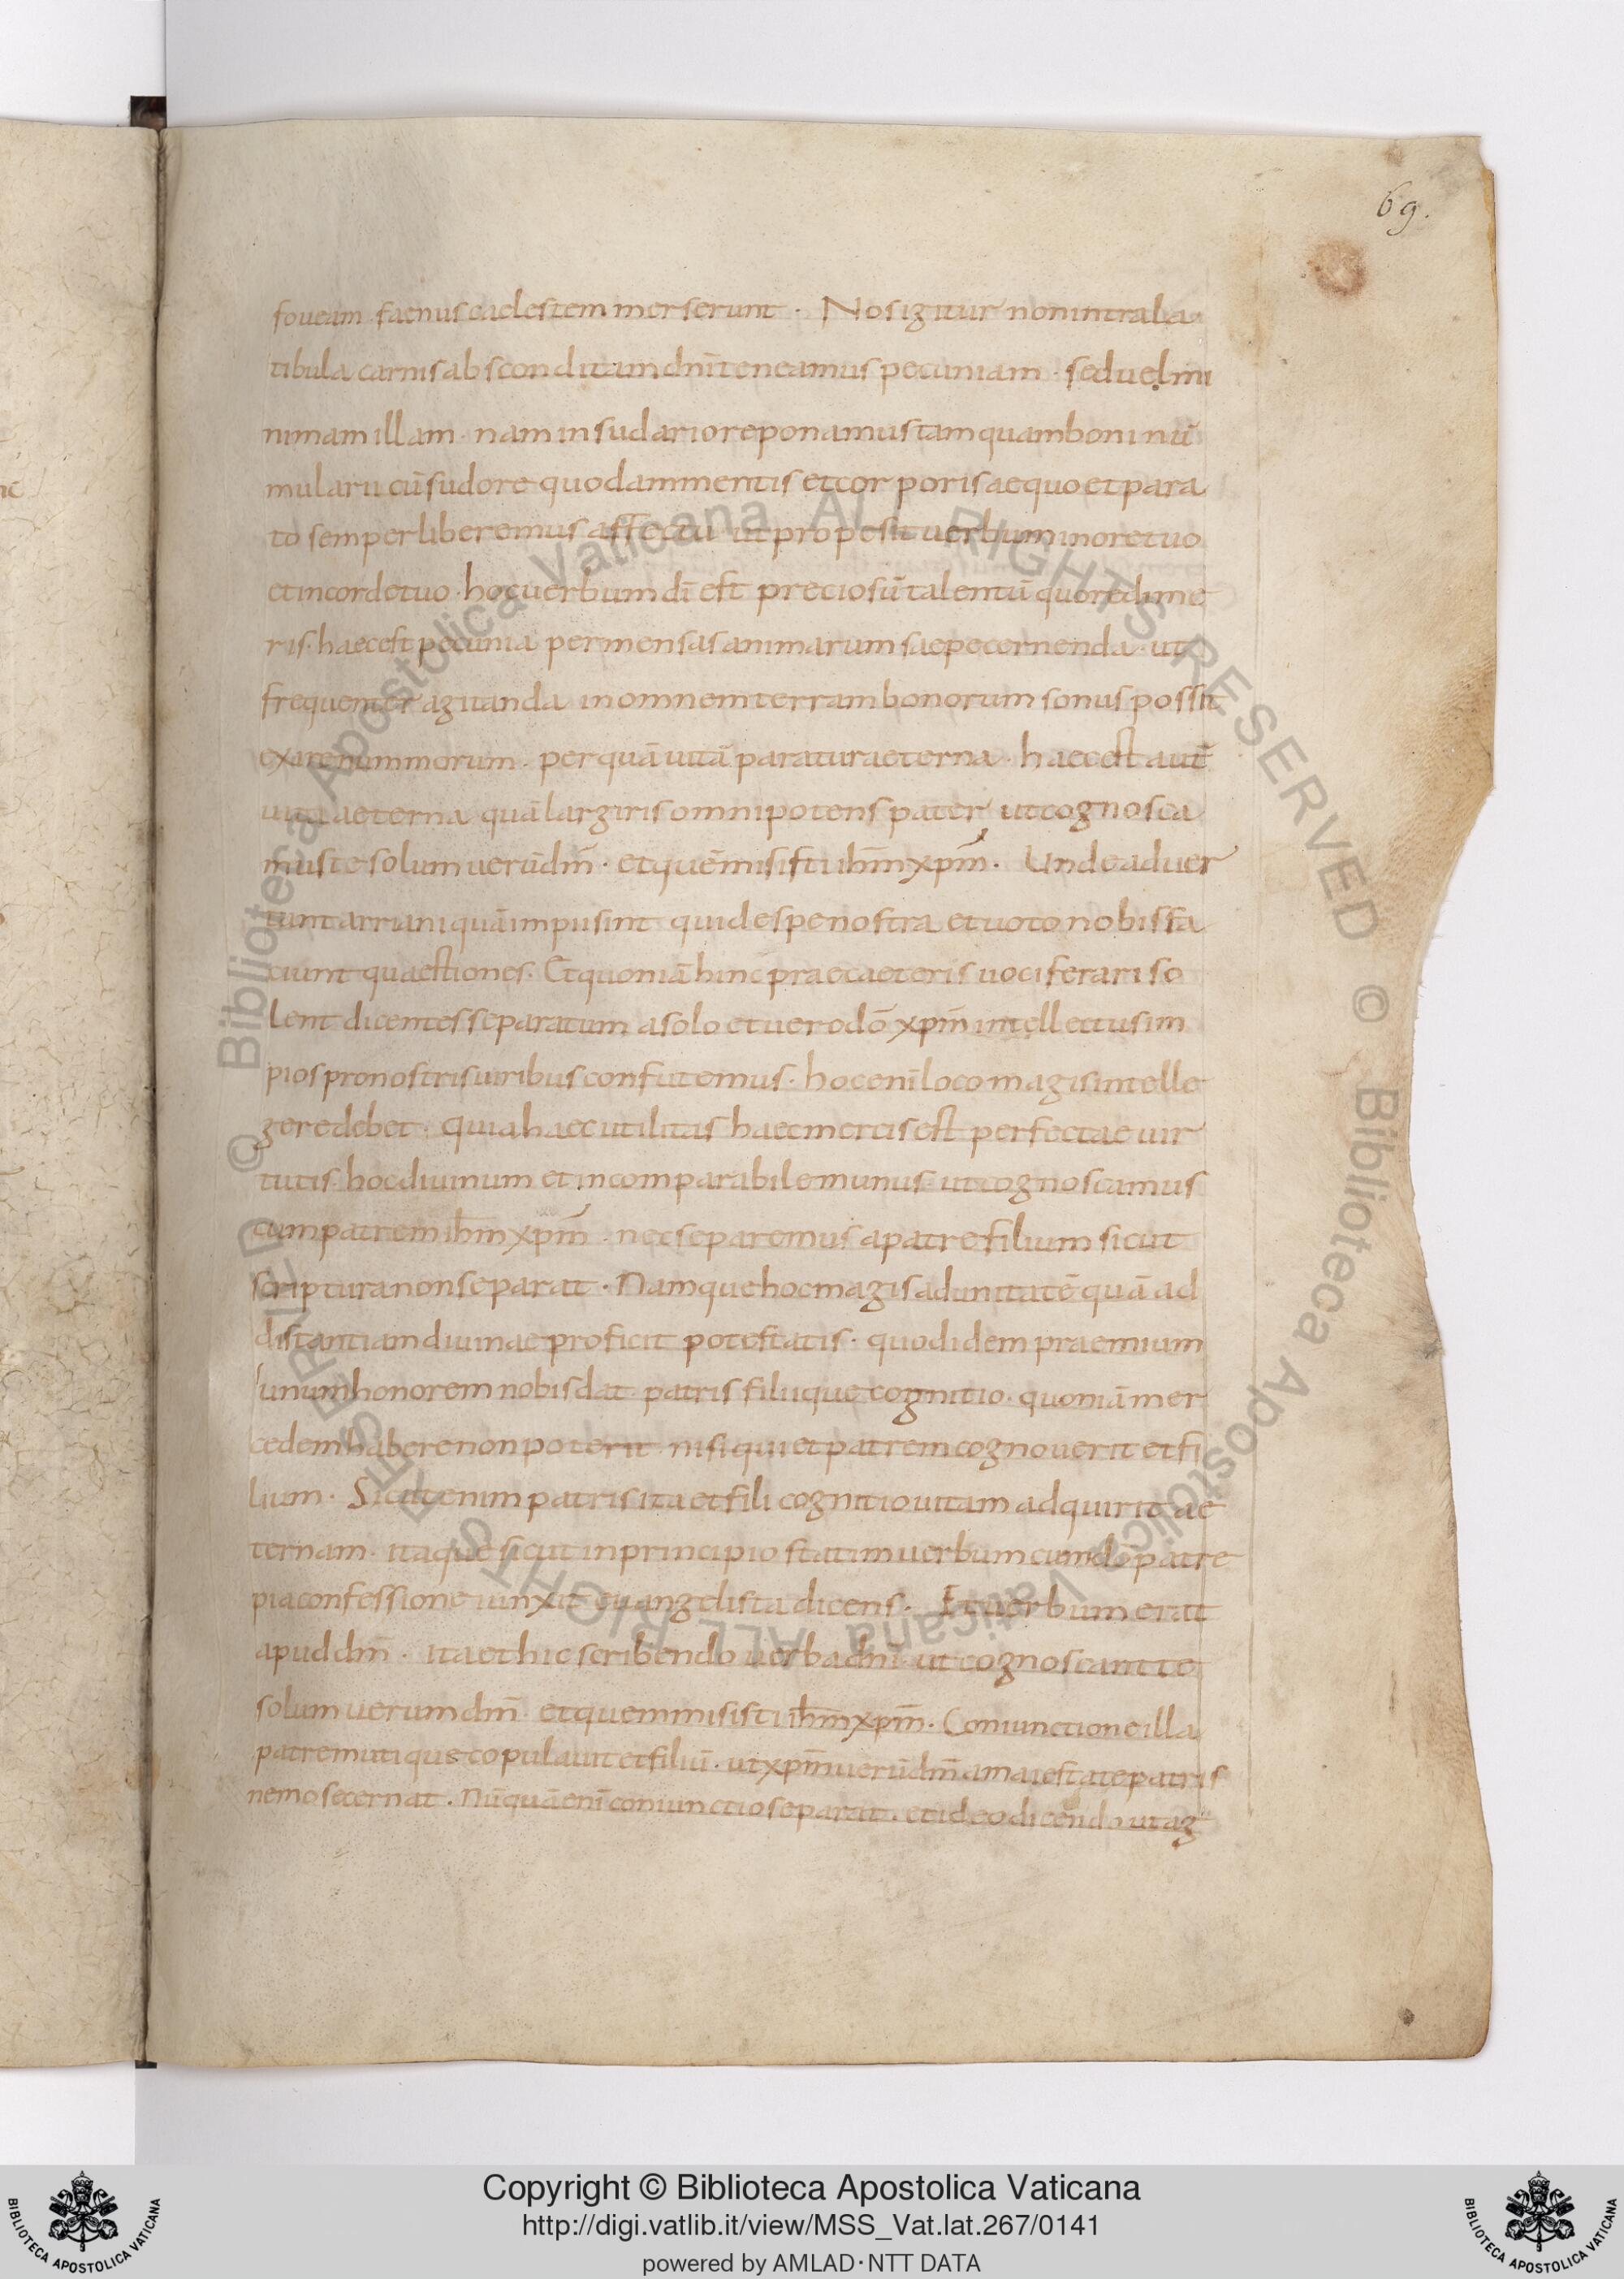 69.
foueam faenus caelestem merserunt · Nos igitur non intra la
tibula carnis absconditam dn̄i teneamus pecuniam · sed uel mi
nimam illam · nam in sudario reponamus tamquam boni nū
mularii cū sudore quodam mentis et corporis aequo et para
to semper liberemus affectu ut prope sit uerbum in ore tuo
et in corde tuo · hoc uerbum dī est preciosū talentū quo redime
ris · haec est pecunia per mensas animarum saepe cernenda · ut
frequenter agitanda in omnem terram bonorum sonus possit
exire nummorum · per quā uitā paratur aeterna · haec est autē
uita aeterna quā largiris omnipotens pater ut cognosca
mus te solum uerū dm̄ · et quē misisti ihm̄ xpm̄ · Unde aduer
tunt arriani quā impii sint qui de spe nostra et uoto nobis fa
ciunt quaestiones · Et quoniā hinc prae caeteris uociferari so
lent dicentes separatum a solo et uero dō xpm̄ intellectus im
pios pro nostris uiribus confutemus · hoc enī loco magis intelle
gere debet · quia haec utilitas haec mercis est perfectae uir
tutis · hoc diuinum et incomparabile munus · ut cognoscamus
cum patrem ihm̄ xpm̄ · nec separemus a patre filium sicut
scriptura non separat · Namque hoc magis ad unitatē quā ad
distantiam diuinae proficit potestatis · quod idem praemium
unum honorem nobis dat patris filiique cognitio · quoniā mer
cedem habere non poterit nisi qui et patrem cognouerit et fi
lium · Sicut enim patris ita et fili cognitio uitam adquirit ae
ternam · itaque sicut in principio statim uerbum cum dō patre
pia confessione uinxit euangelista dicens · Et uerbum erat
apud dm̄ · ita et hic scribendo uerba dn̄i ut cognoscant te
solum uerum dm̄ et quem misisti ihm̄ xpm̄ · Coniunctione illa
patrem utique copulauit et filiū · ut xpm̄ uerū dm̄ a maiestate patris
nemo secernat · Nūquā enī coniunctio separat · et ideo dicendo ut
Copyright © Biblioteca Apostolica Vaticana
http://digi.vatlib.it/view/MSS_Vat.lat.267/0141
powered by AMLAD·NTT DATA
BIBLIOTECA APOSTOLICA VATICANA
BIBLIOTECA APOSTOLICA VATICANA
© Biblioteca Apostolica Vaticana ALL RIGHTS RESERVED
© Biblioteca Apostolica Vaticana ALL RIGHTS RESERVED